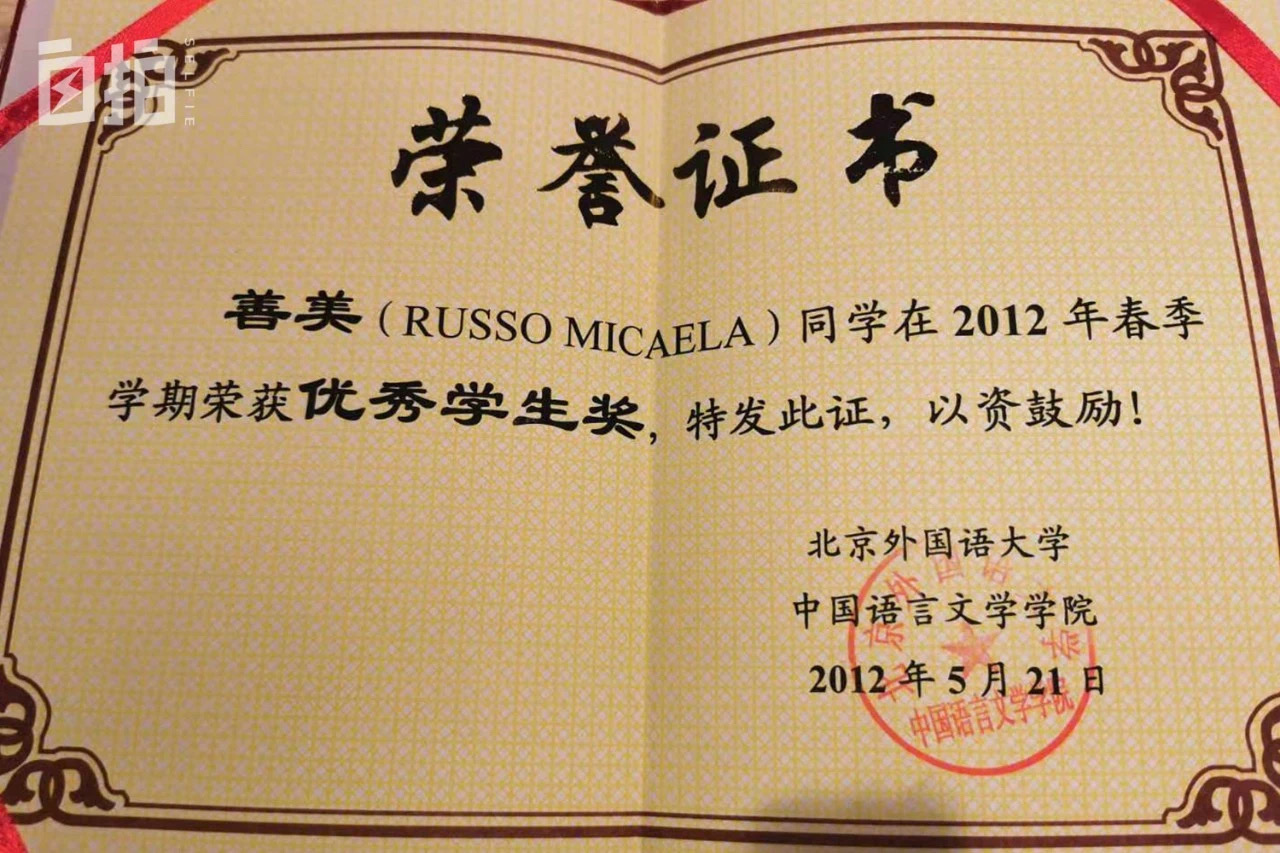 自拍
SELFIE
荣誉证书
善美（RUSSO MICAELA）同学在 2012 年春季
学期荣获优秀学生奖，特发此证，以资鼓励！
北京外国语大学
中国语言文学学院
2012 年 5 月 21 日
北京外国语大学
中国语言文学学院